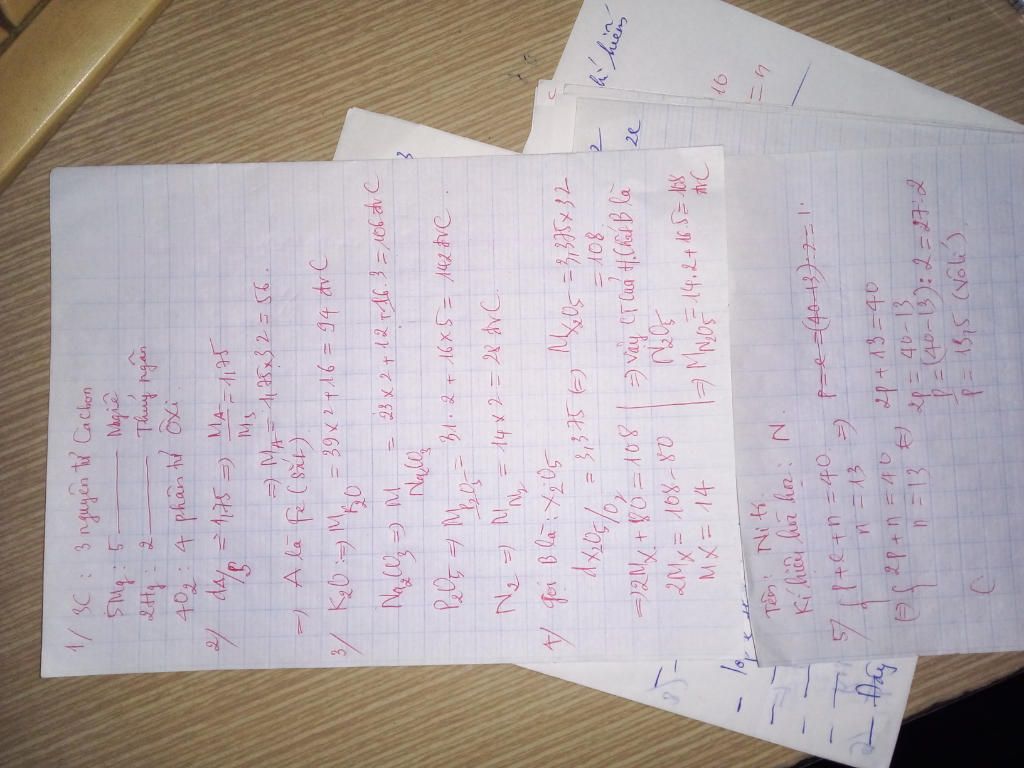 1/ 3C : 3 nguyên tử Cacbon
5Mg : 5 ——— Magiê
2Hg : 2 ——— Thuỷ ngân
4O2 : 4 phân tử Ôxi
2/ dA/B = 1,75 => MA/MS = 1,75
=> MA = 1,75x32 = 56.
=> A là Fe (sắt)
3/ K2O => MK2O = 39x2+16 = 94 đvC
Na2CO3 => MNa2CO3 = 23x2+12+16.3 = 106 đvC
P2O5 => MP2O5 = 31.2+16x5 = 142 đvC.
N2 => MN2 = 14x2 = 28 đvC.
4/ Gọi B là : X2O5
dX2O5/O2 = 3,375 (=) MX2O5 = 3,375x32
= 108
=> 2MX + 80 = 108 => Vậy CT của H.Chất B là
2MX = 108-80 N2O5
MX = 14 => MN2O5 = 14.2+16.5 = 108 đvC
Tên : Nitơ
Kí hiệu hoá học : N
5/ { p+e+n = 40. => p=e=(40-13):2=1.
n = 13 2p+13=40
(=) { 2p+n = 40 (=) 2p = 40-13
n = 13 p = (40-13):2 = 27:2
p = 13,5 (Vô lí)
kí hiệu
16
= n
2e